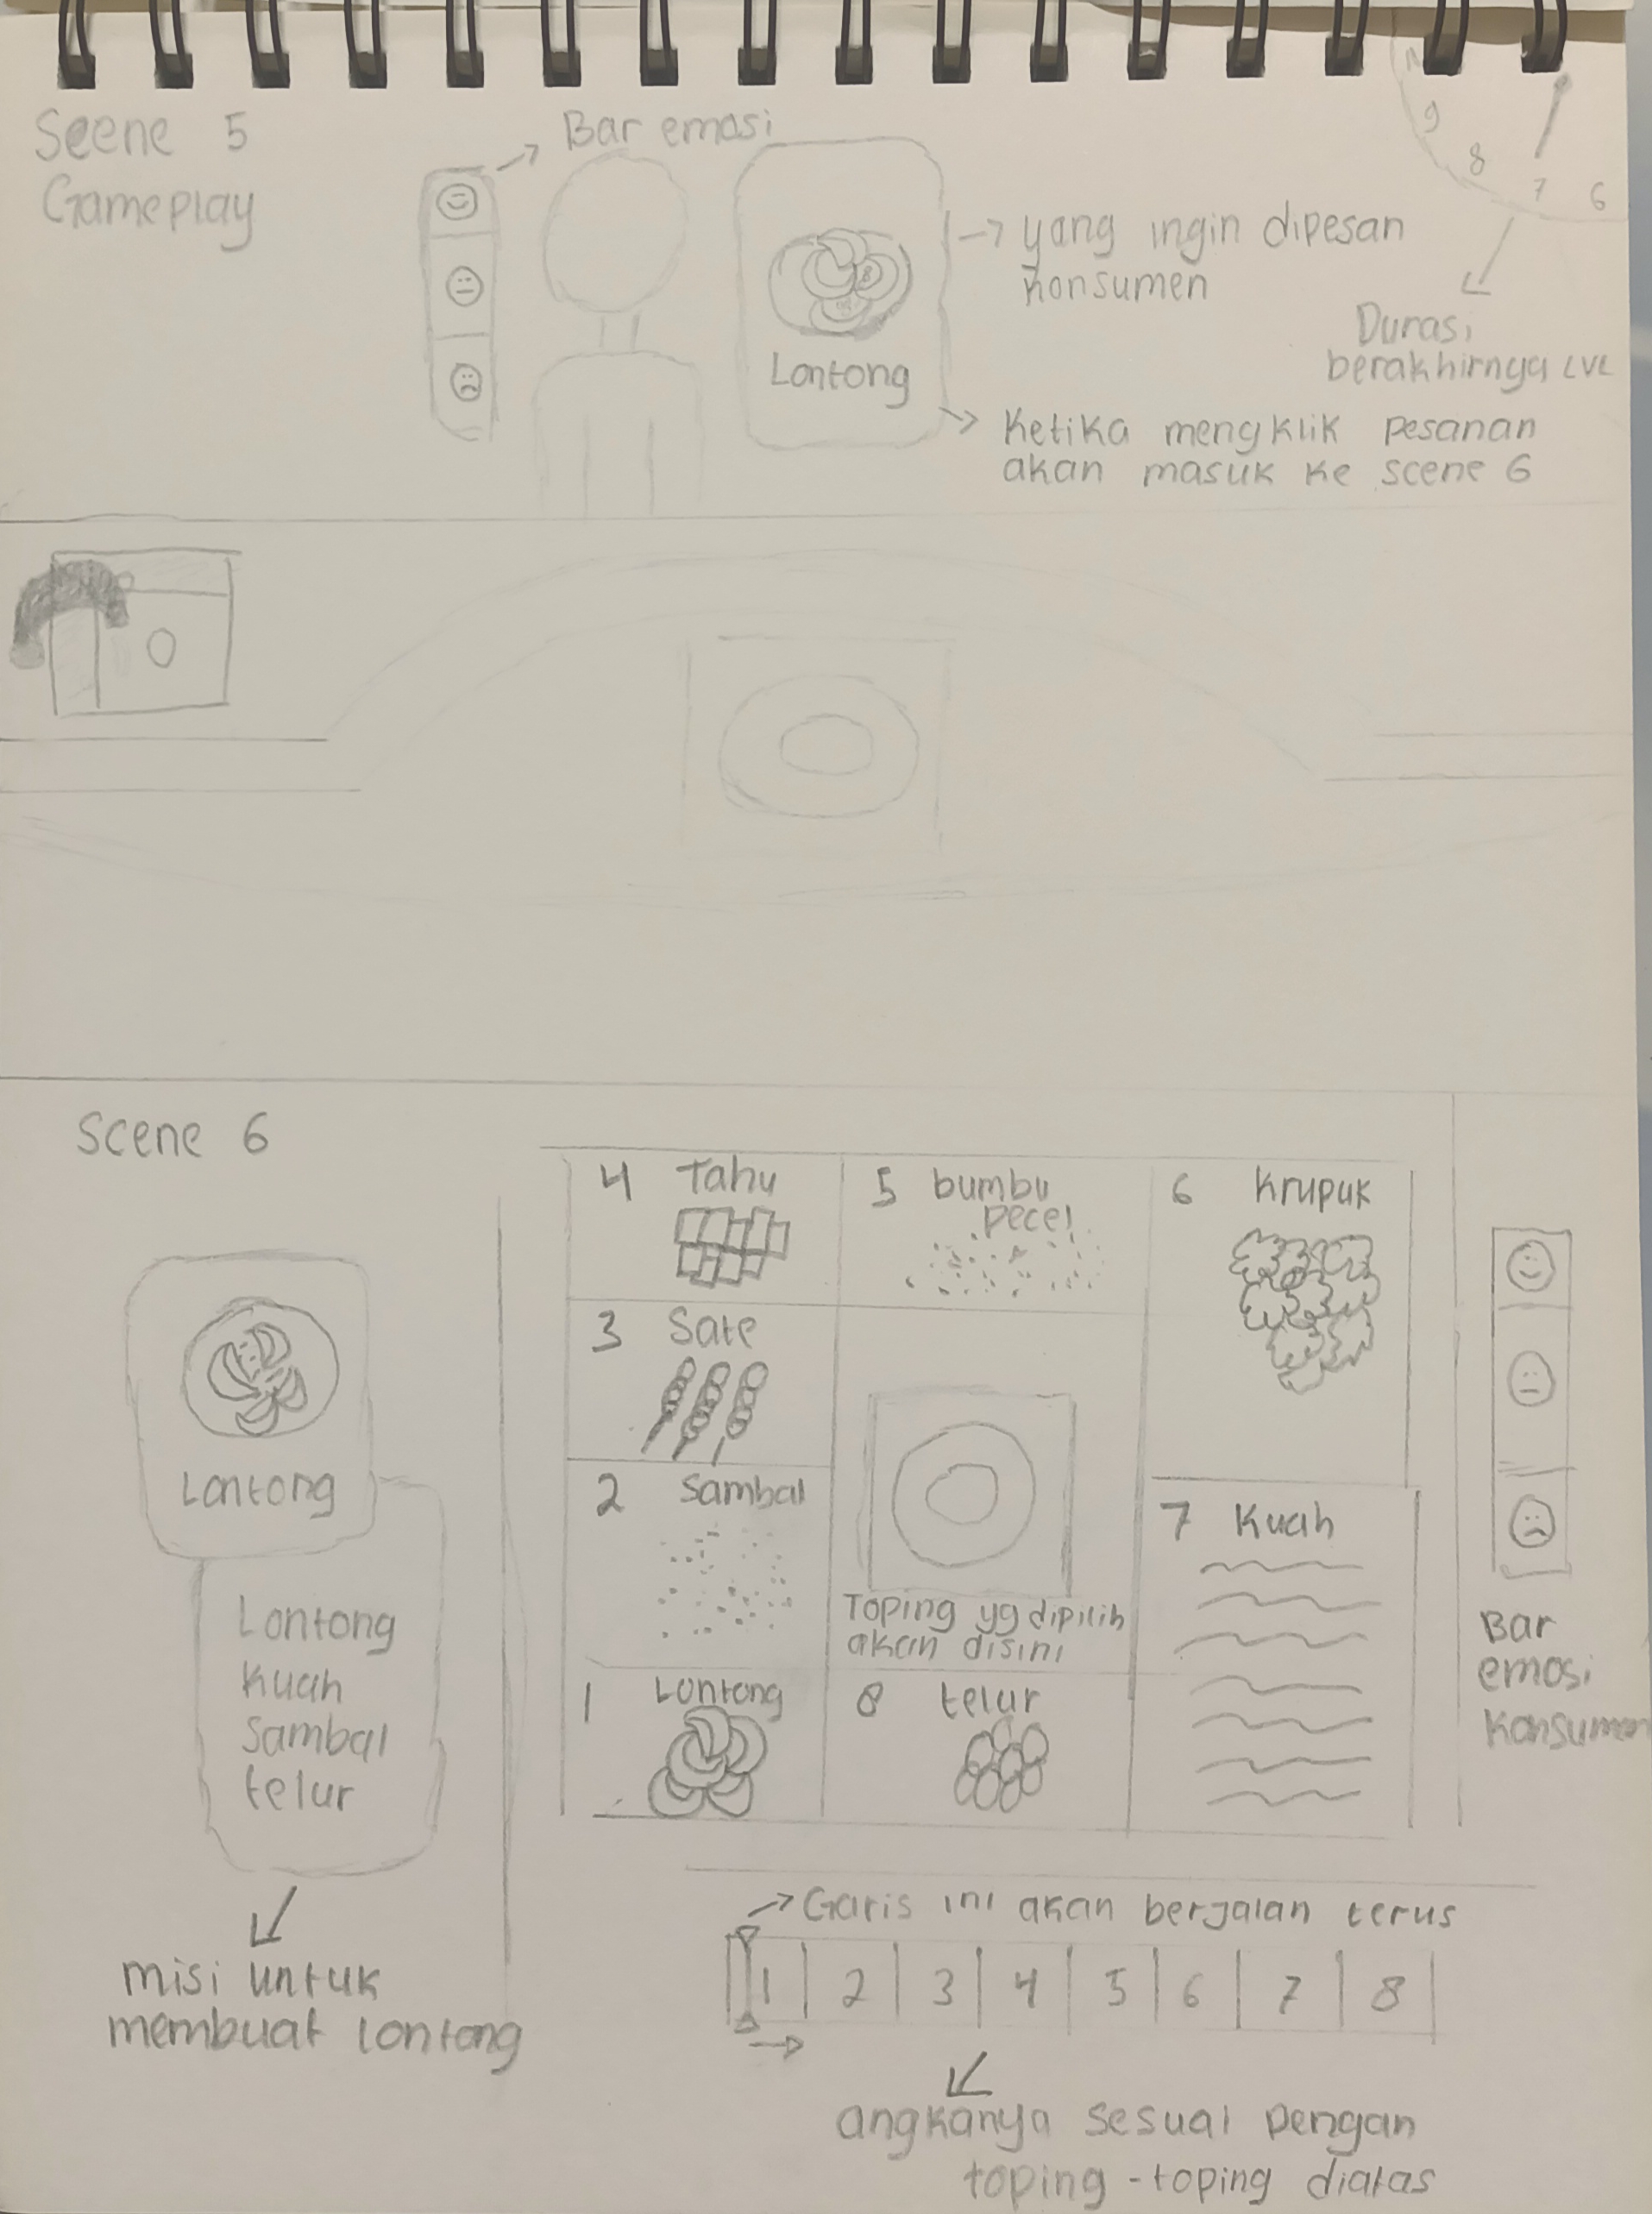 Scene 5
Gameplay
Bar emosi
Lontong
yang ingin dipesan
konsumen
9
8
7
6
Durasi
berakhirnya LVL
Ketika mengklik pesanan
akan masuk ke scene 6
Scene 6
Lontong
Lontong
kuah
Sambal
telur
misi untuk
membuat lontong
4 Tahu
5 bumbu
pecel
6 Krupuk
3 Sate
2 Sambal
Toping yg dipilih
akan disini
7 Kuah
1 Lontong
8 telur
Bar
emosi
Konsumen
Garis ini akan berjalan terus
1 2 3 4 5 6 7 8
angkanya sesuai dengan
toping-toping diatas